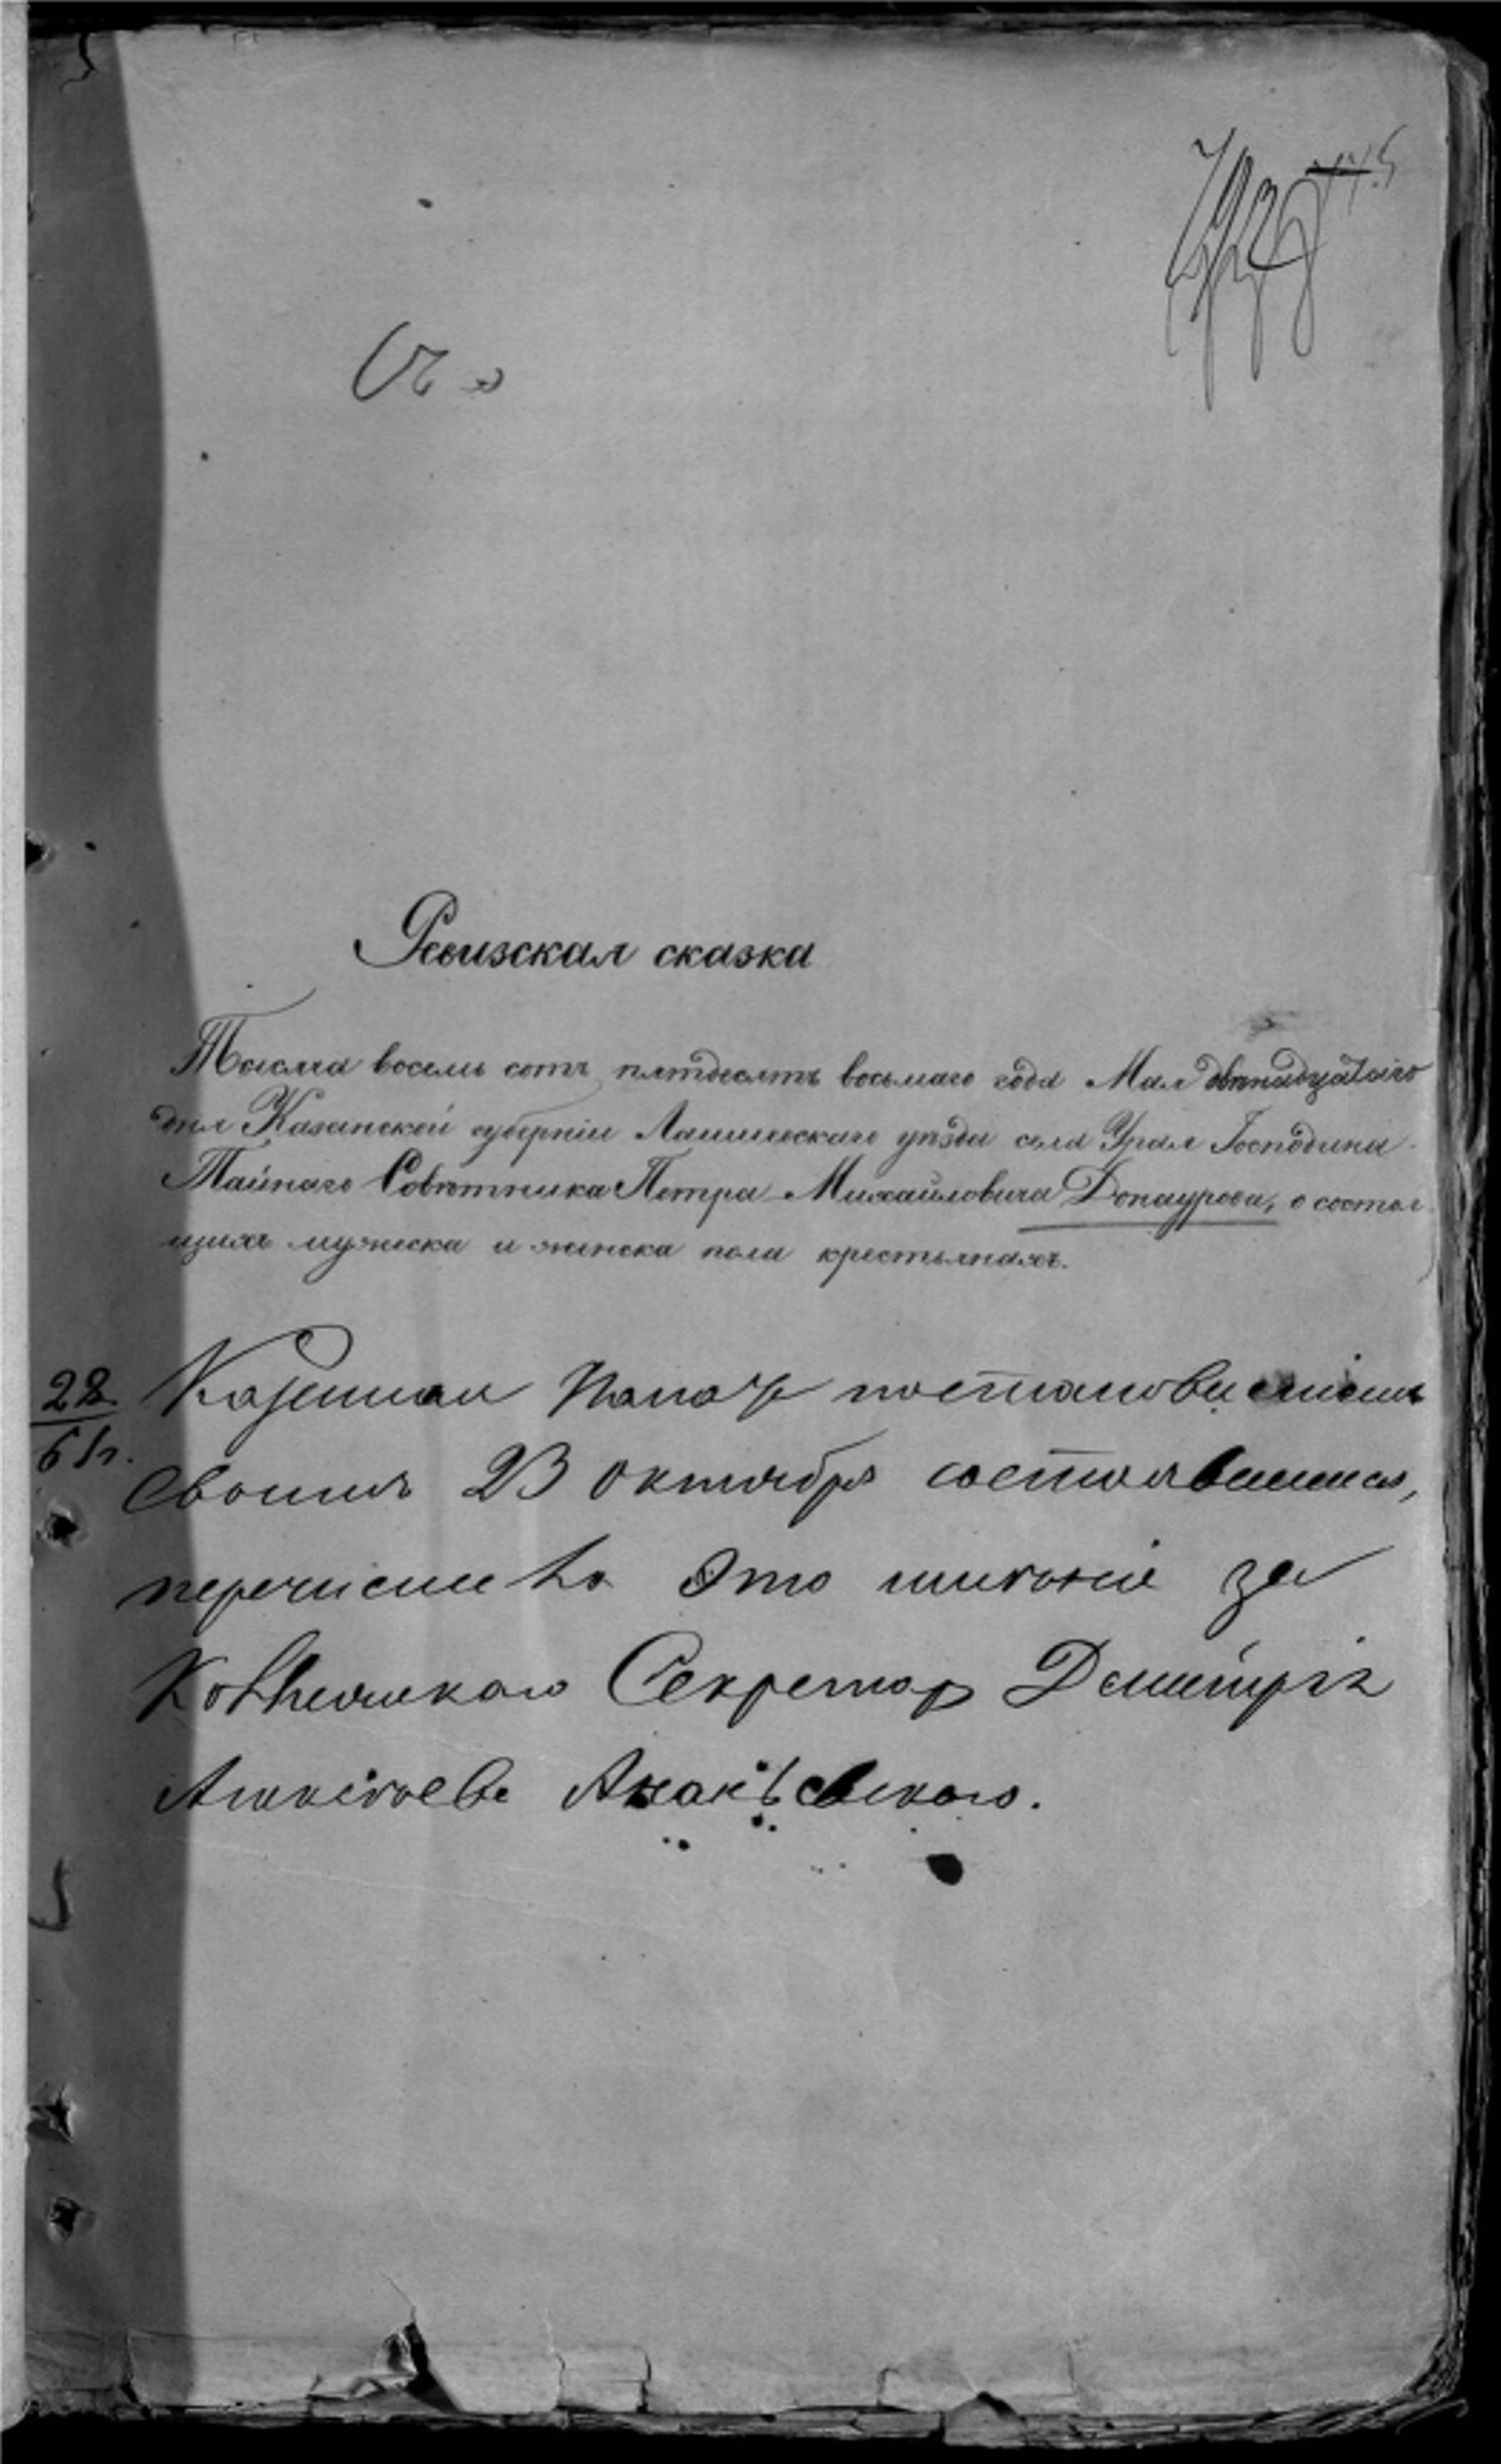 Ревизская сказка
Тысяча восемь сотъ пятдесятъ восьмаго года Мая двенадцатаго
дня Казанской губерніи Лаишевскаго уѣзда села Урая Господина
Тайнаго Совѣтника Петра Михайловича Донаурова, о состоя
щихъ мужеска и женска пола крестьянахъ.
22
61 г.
Казенная Палата постановленіемъ
своимъ 23 октября состоявшимся,
перечислила это имѣніе за
Коллежскаго Секретаря Дмитрія